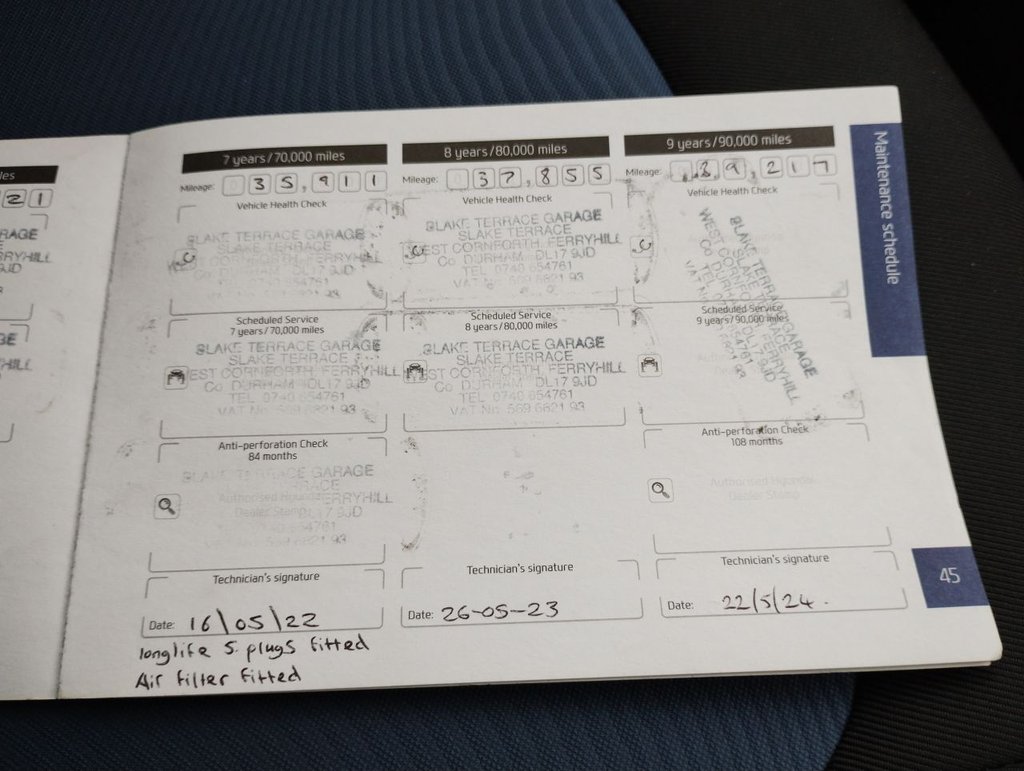 les
21
RAGE
RRYHILL
9JD
GE
HILL
7 years/70,000 miles
Mileage: 0 35,911
Vehicle Health Check
SLAKE TERRACE GARAGE
SLAKE TERRACE
FERRYHILL
Co DURHAM DL17 9JD
Scheduled Service
7 years/70,000 miles
SLAKE TERRACE GARAGE
SLAKE TERRACE
WEST CORNFORTH, FERRYHILL
Co DURHAM DL17 9JD
TEL 0740 654761
VAT No 569 6821 93
Anti-perforation Check
84 months
SLAKE TERRACE GARAGE
Authorised Hyundai FERRYHILL
Dealer Stamp DL17 9JD
Technician's signature
Date: 16\05/22
longlife S. plugs fitted
Air filter fitted
8 years/80,000 miles
Mileage: 37,855
Vehicle Health Check
SLAKE TERRACE GARAGE
SLAKE TERRACE
WEST CORNFORTH, FERRYHILL
Co DURHAM DL17 9JD
TEL 0740 654761
VAT No 569 6821 93
Scheduled Service
8 years/80,000 miles
SLAKE TERRACE GARAGE
SLAKE TERRACE
WEST CORNFORTH, FERRYHILL
Co DURHAM DL17 9JD
TEL 0740 654761
VAT No 569 6821 93
Technician's signature
Date: 26-05-23
9 years/90,000 miles
Mileage: 39,217
Vehicle Health Check
SLAKE TERRACE GARAGE
SLAKE TERRACE
WEST CORNFORTH, FERRYHILL
Co DURHAM DL17 9JD
Scheduled Service
9 years/90,000 miles
Anti-perforation Check
108 months
Authorised Hyundai
Dealer Stamp
Technician's signature
Date: 22/5/24.
Maintenance schedule
45